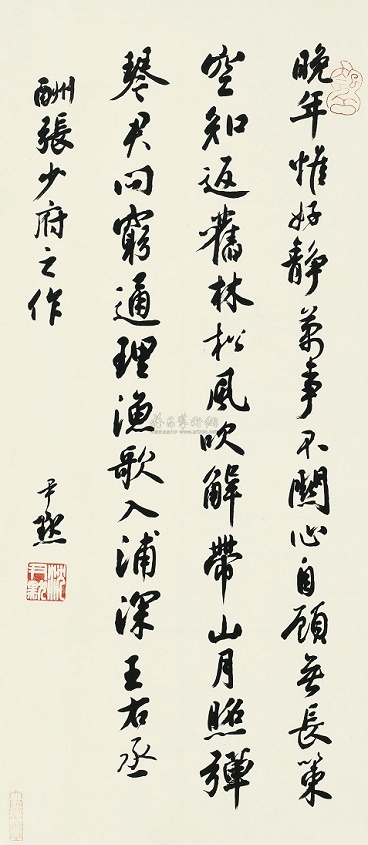 晚年惟好靜萬事不關心自顧無長策
空知返舊林松風吹解帶山月照彈
琴君問窮通理漁歌入浦深王右丞
酬張少府之作
尹默
沈尹默